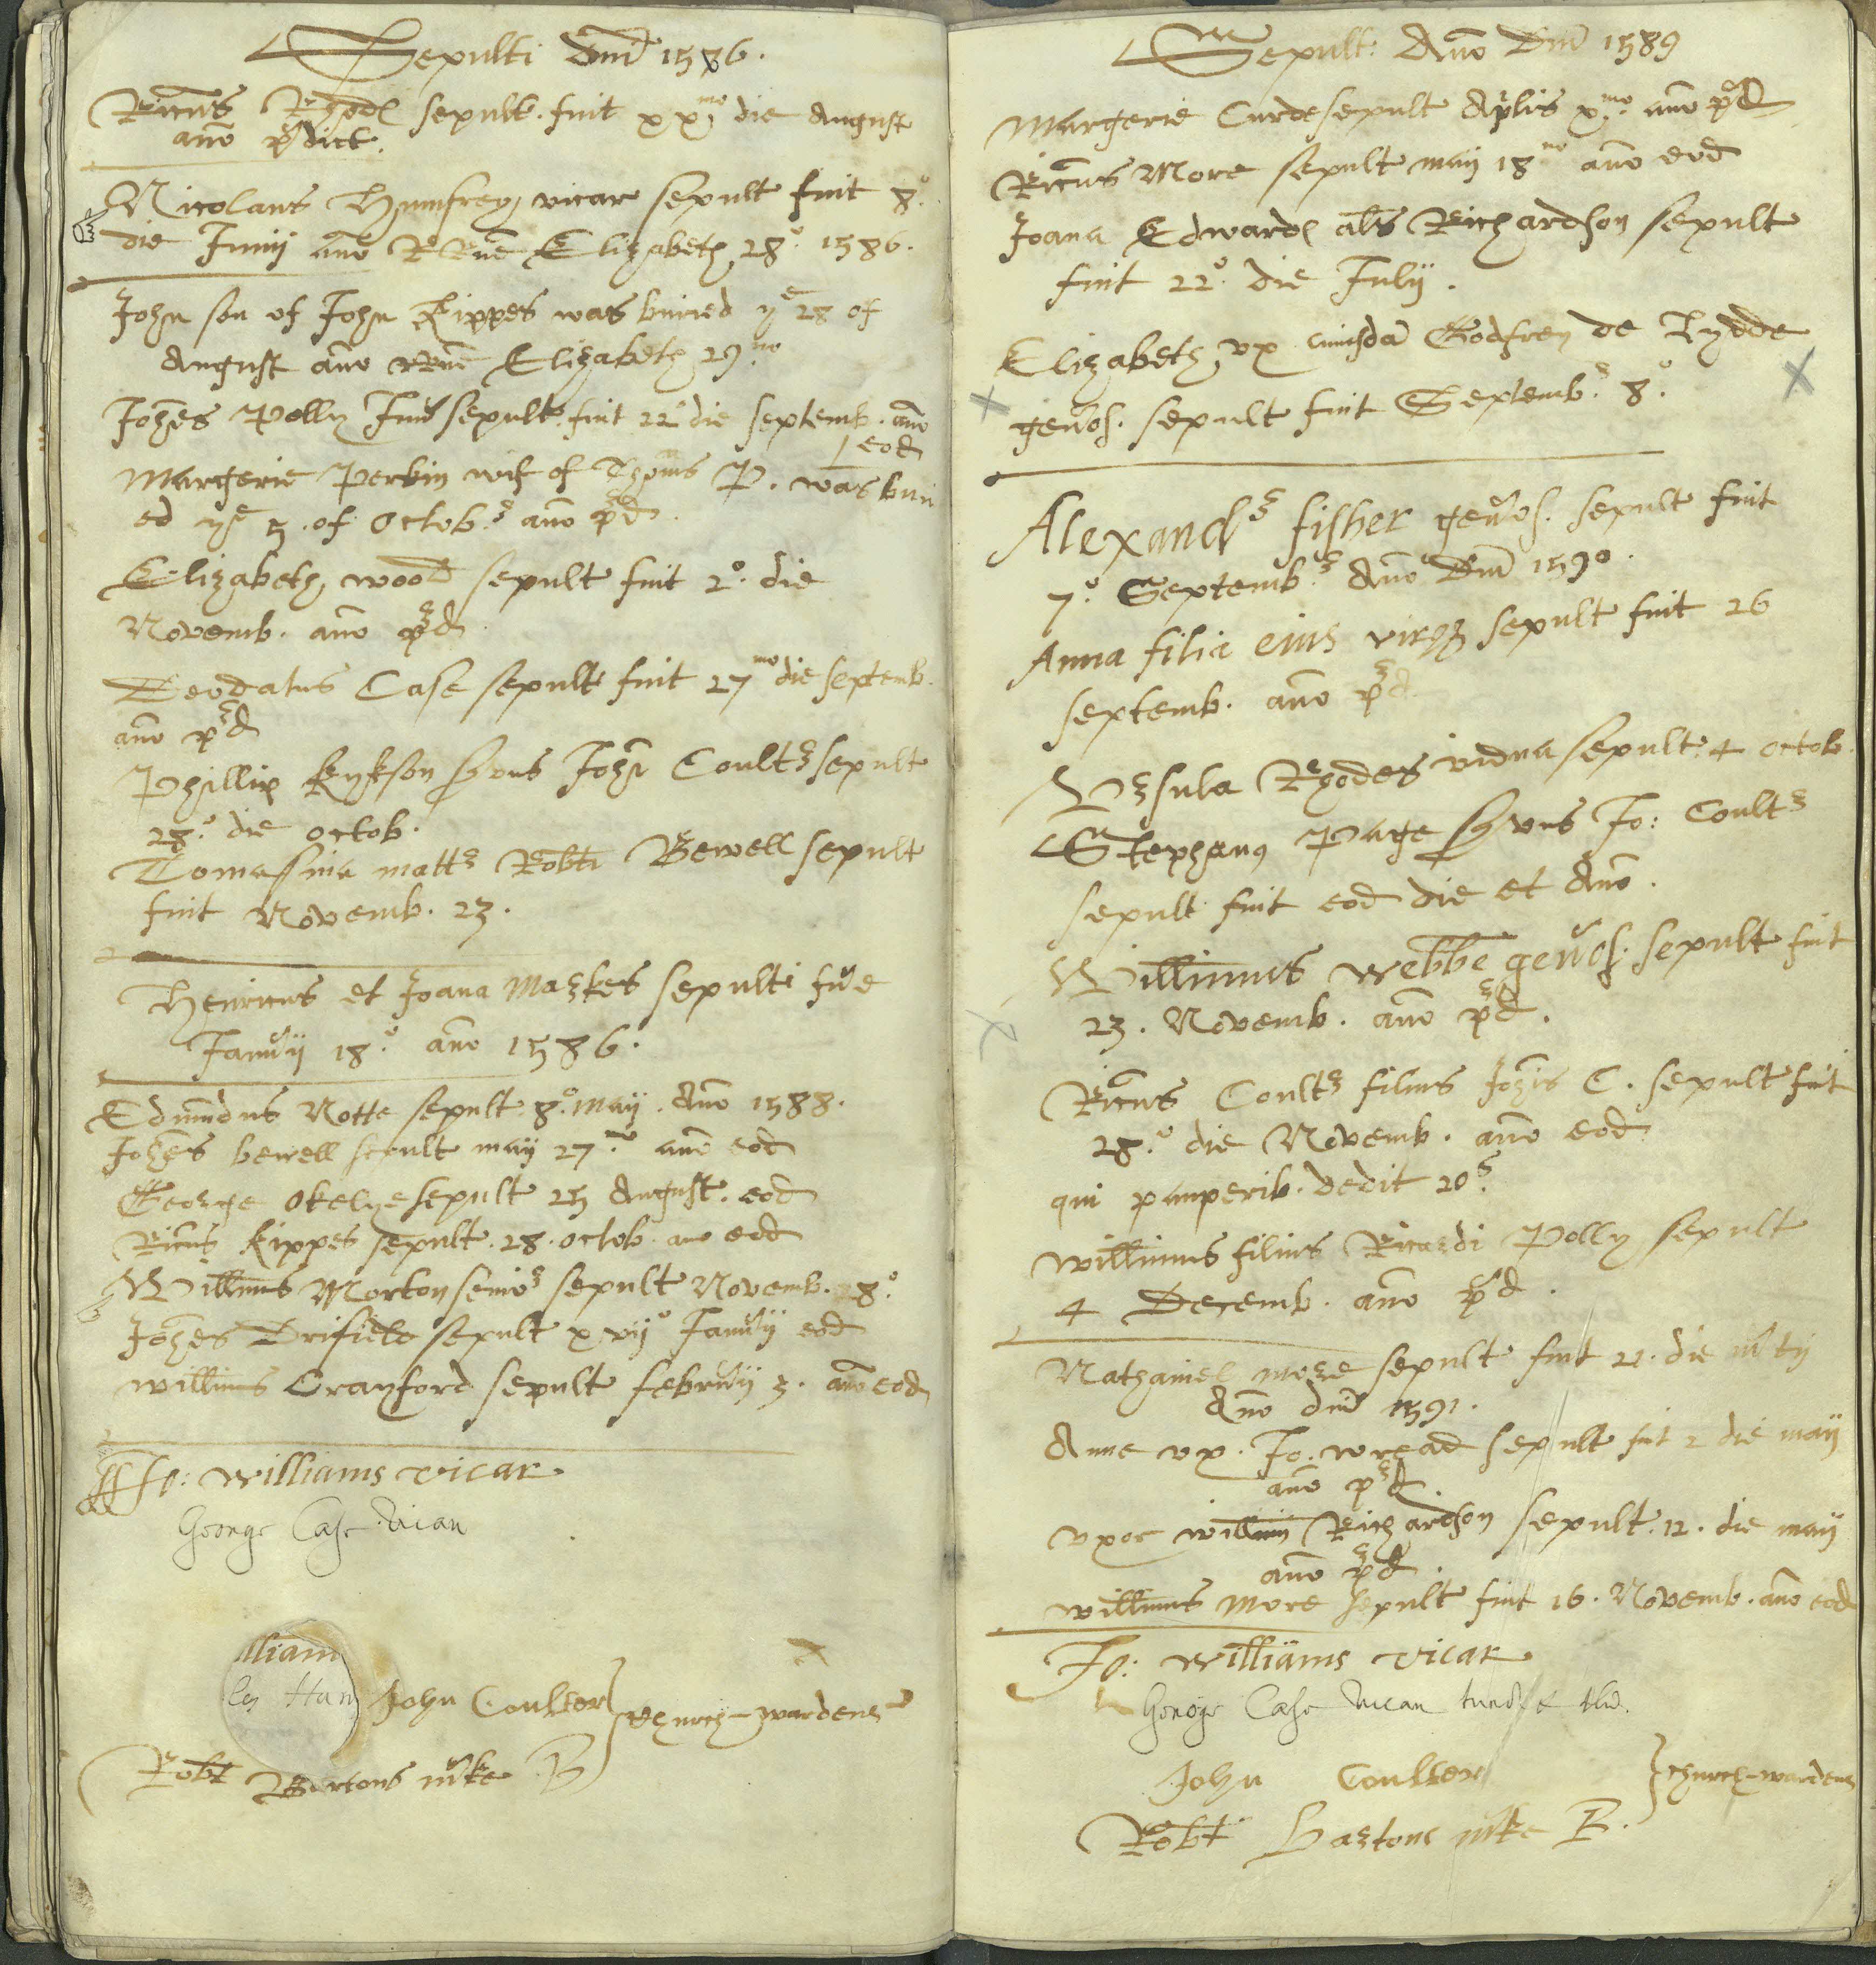 Sepulti Dm̄ 1586.
Ricūs Rhodes sepult. fuit xximo die August
an̄o p̄dict.
Nicolaus Humfrey vicar sepult fuit 8o.
die Junij an̄o R Rn̄e Elizabeth 28o. 1586.
John son of John Kippes was buried ye 28 of
August an̄o rRn̄e Elizabeth 29no
Joh̄es Polly Jun̄ sepult. fuit 22o die septemb. an̄o
eod
Margerie Perkin wif of Thom̄s P. was buri
ed ye 5. of Octob.r an̄o p̄d.
Elizabeth wood sepult fuit 2o. die
Novemb. an̄o p̄d.
Deodatus Case sepult fuit 27mo die septemb.
an̄o p̄d
Phillip Kykson s̄vus Joh̄ Coultr sepult
28o. die octob.
Tomassina mattr Robti Bewell sepult
fuit Novemb. 23.
Henricus et Joana Markes sepulti fūe
Januīj 18o. an̄o 1586.
Edmūdus Notte sepult 8o. Maij. An̄o 1588.
Joh̄es bewell sepult maij 27mo an̄o eod
George Okelye sepult 25 August. eod
Ricūs Kippes sepult. 28. octob. ano eod
Willm̄us Morton senior sepult Novemb. 28o.
Joh̄es Drifield sepult xvijo Januīj eod
willim̄s Cranford sepult februīj 3. an̄o eod
Jo: Williams vicar
George Case vicar
lliam
John Coulter } Church-wardens
Robt Bartons m̄ke B
Sepult: An̄o Dm̄ 1589
Margerie Curde sepult Ap̄lis xmo. an̄o p̄d
Ricūs More sepult maij 18no an̄o eod
Joana Edwards al̄s Richardson sepult
fuit 22o. die Julij.
Elizabeth vx cuiusdā Godfrey de Lydde
gen̄os. sepult fuit Septemb.r 8o.
Alexandr fisher gen̄os. sepult fuit
7o. Septemb.r An̄o Dm̄ 1590.
Anna filia eius virg sepult fuit 26
septemb. an̄o p̄d.
Vrsula Rhodes vidua sepult. 4 octob.
Stephanus Page s̄vus Jo: Coultr
sepult fuit eod die et An̄o.
Willimus Webbe gen̄os. sepult fuit
23. Novemb. an̄o p̄d.
Ricūs Coultr filius Joh̄is C. sepult fuit
28o. die Novemb. an̄o eod
qui pauperib. dedit 20s.
willimus filius Ricardi Polly sepult
4 Decemb. an̄o p̄d.
Nathaniel more sepult fuit 21. die m̄tij
An̄o dm̄ 1591.
Anne vx. Jo. wread sepult fuit 2 die maij
an̄o p̄d.
vxor willim̄ Richardson sepult. 12. die maij
an̄o p̄d.
willimus more sepult fuit 16. Novemb. an̄o eod
Jo: Williams vicar
George Case vican
John Coulter } Church-wardens
Robt Bartons m̄ke B.